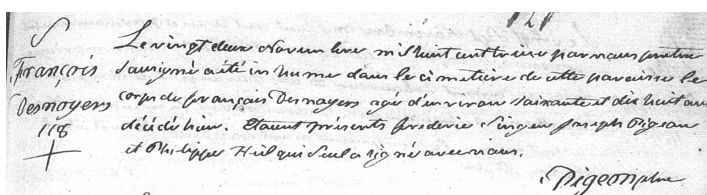 S
François
Desnoyers
118
Le vingt deux Novembre mil huit cent treize par nous prêtre
soussigné a été inhumé dans le cimetière de cette paroisse le
corps de françois Desnoyers agé d'environ soixante et dix huit ans
décédé hier. Etaient présents frederic Singer Joseph Pigeon
et Philippe Heil qui seul a signé avec nous.
Pigeon ptre